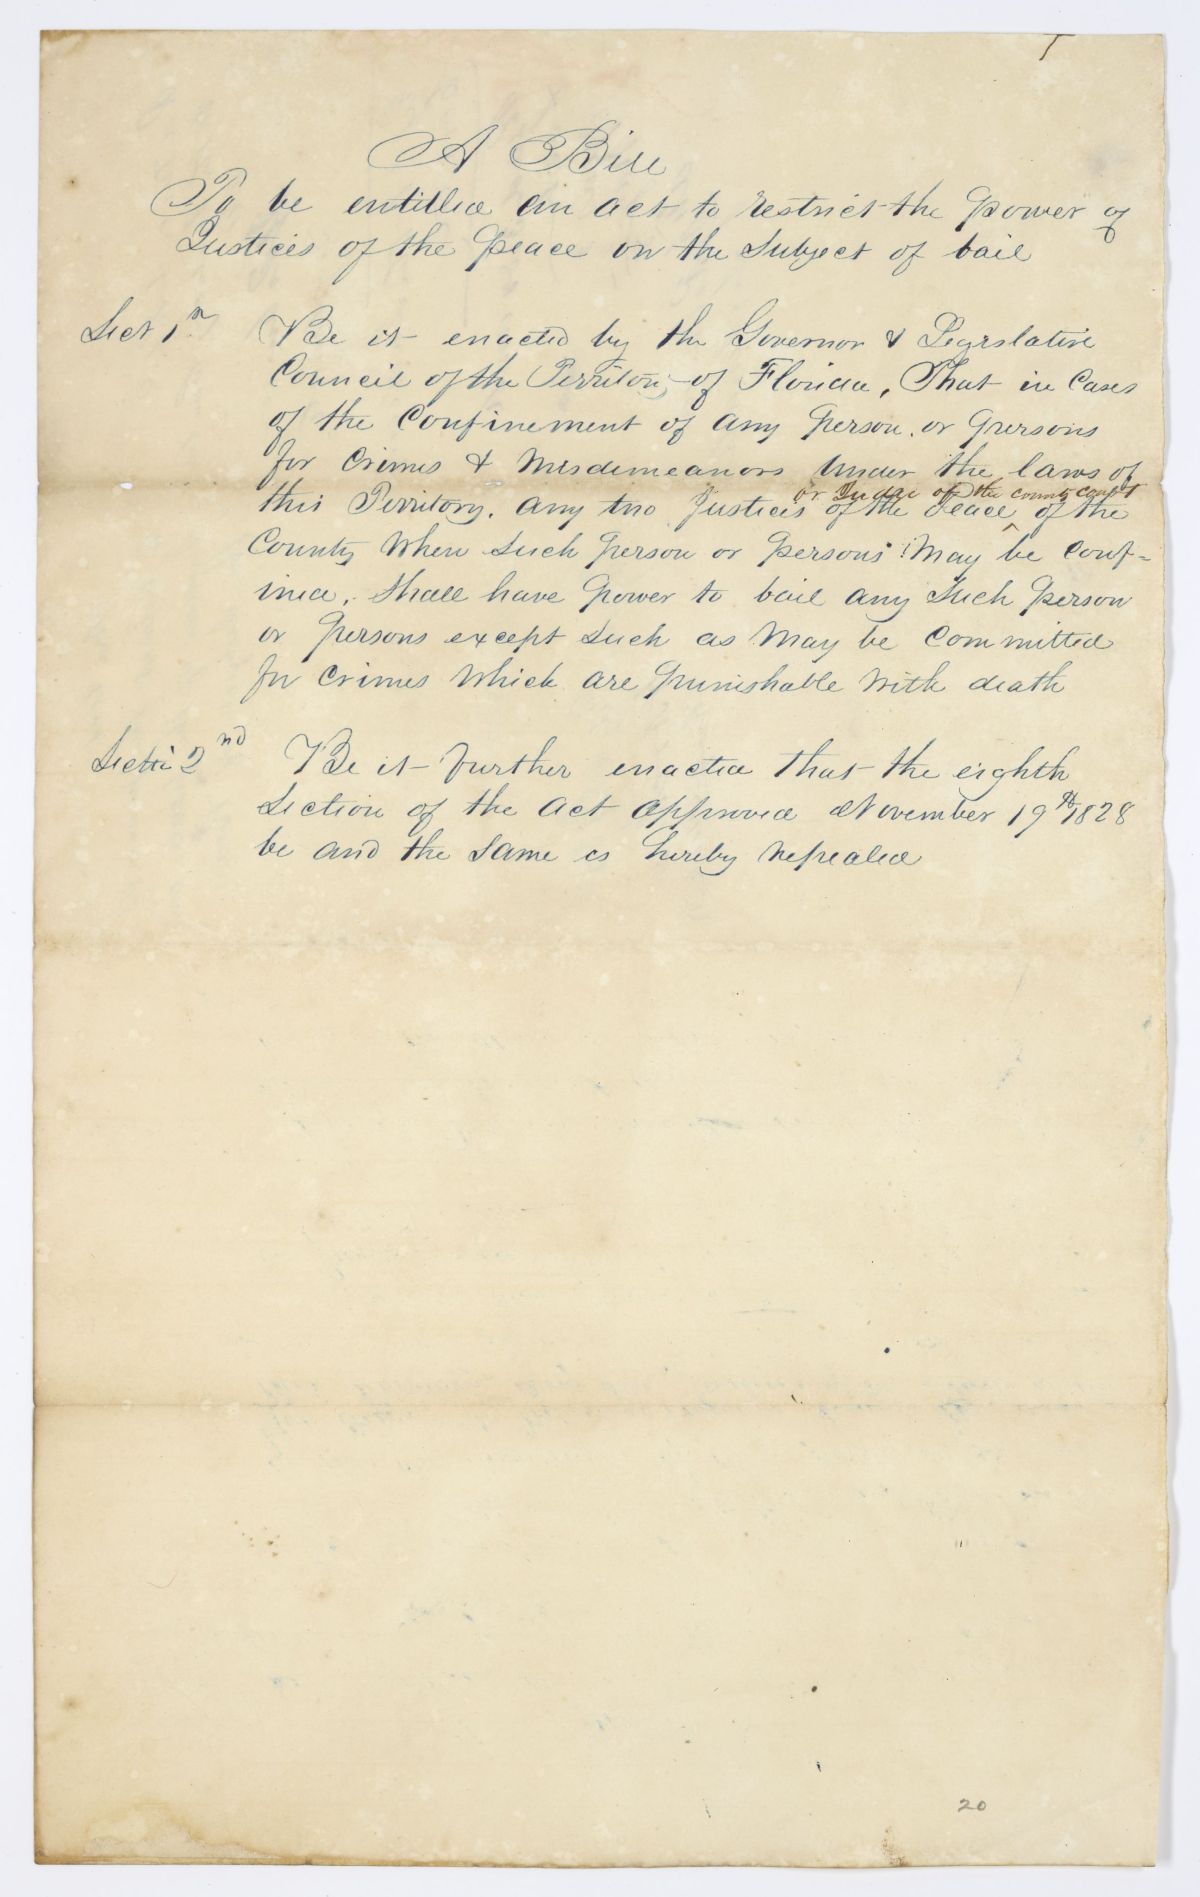 A Bill
To be entitled an act to restrict the power of
Justices of the peace on the Subject of bail
Sect 1st Be it enacted by the Governor & Legislative
Council of the Territory of Florida, That in Cases
of the Confinement of any person or persons
for Crimes & Misdemeanors under the laws of
or Judge of the county court
this Territory. any two Justices of the Peace ^ of the
County When Such person or persons May be Conf-
ined, Shall have power to bail any Such person
or persons except Such as May be Committed
for Crimes Which are punishable With death
Secti 2nd Be it further enacted that the eighth
Section of the act approved November 19th 1828
be and the Same is hereby repealed
20